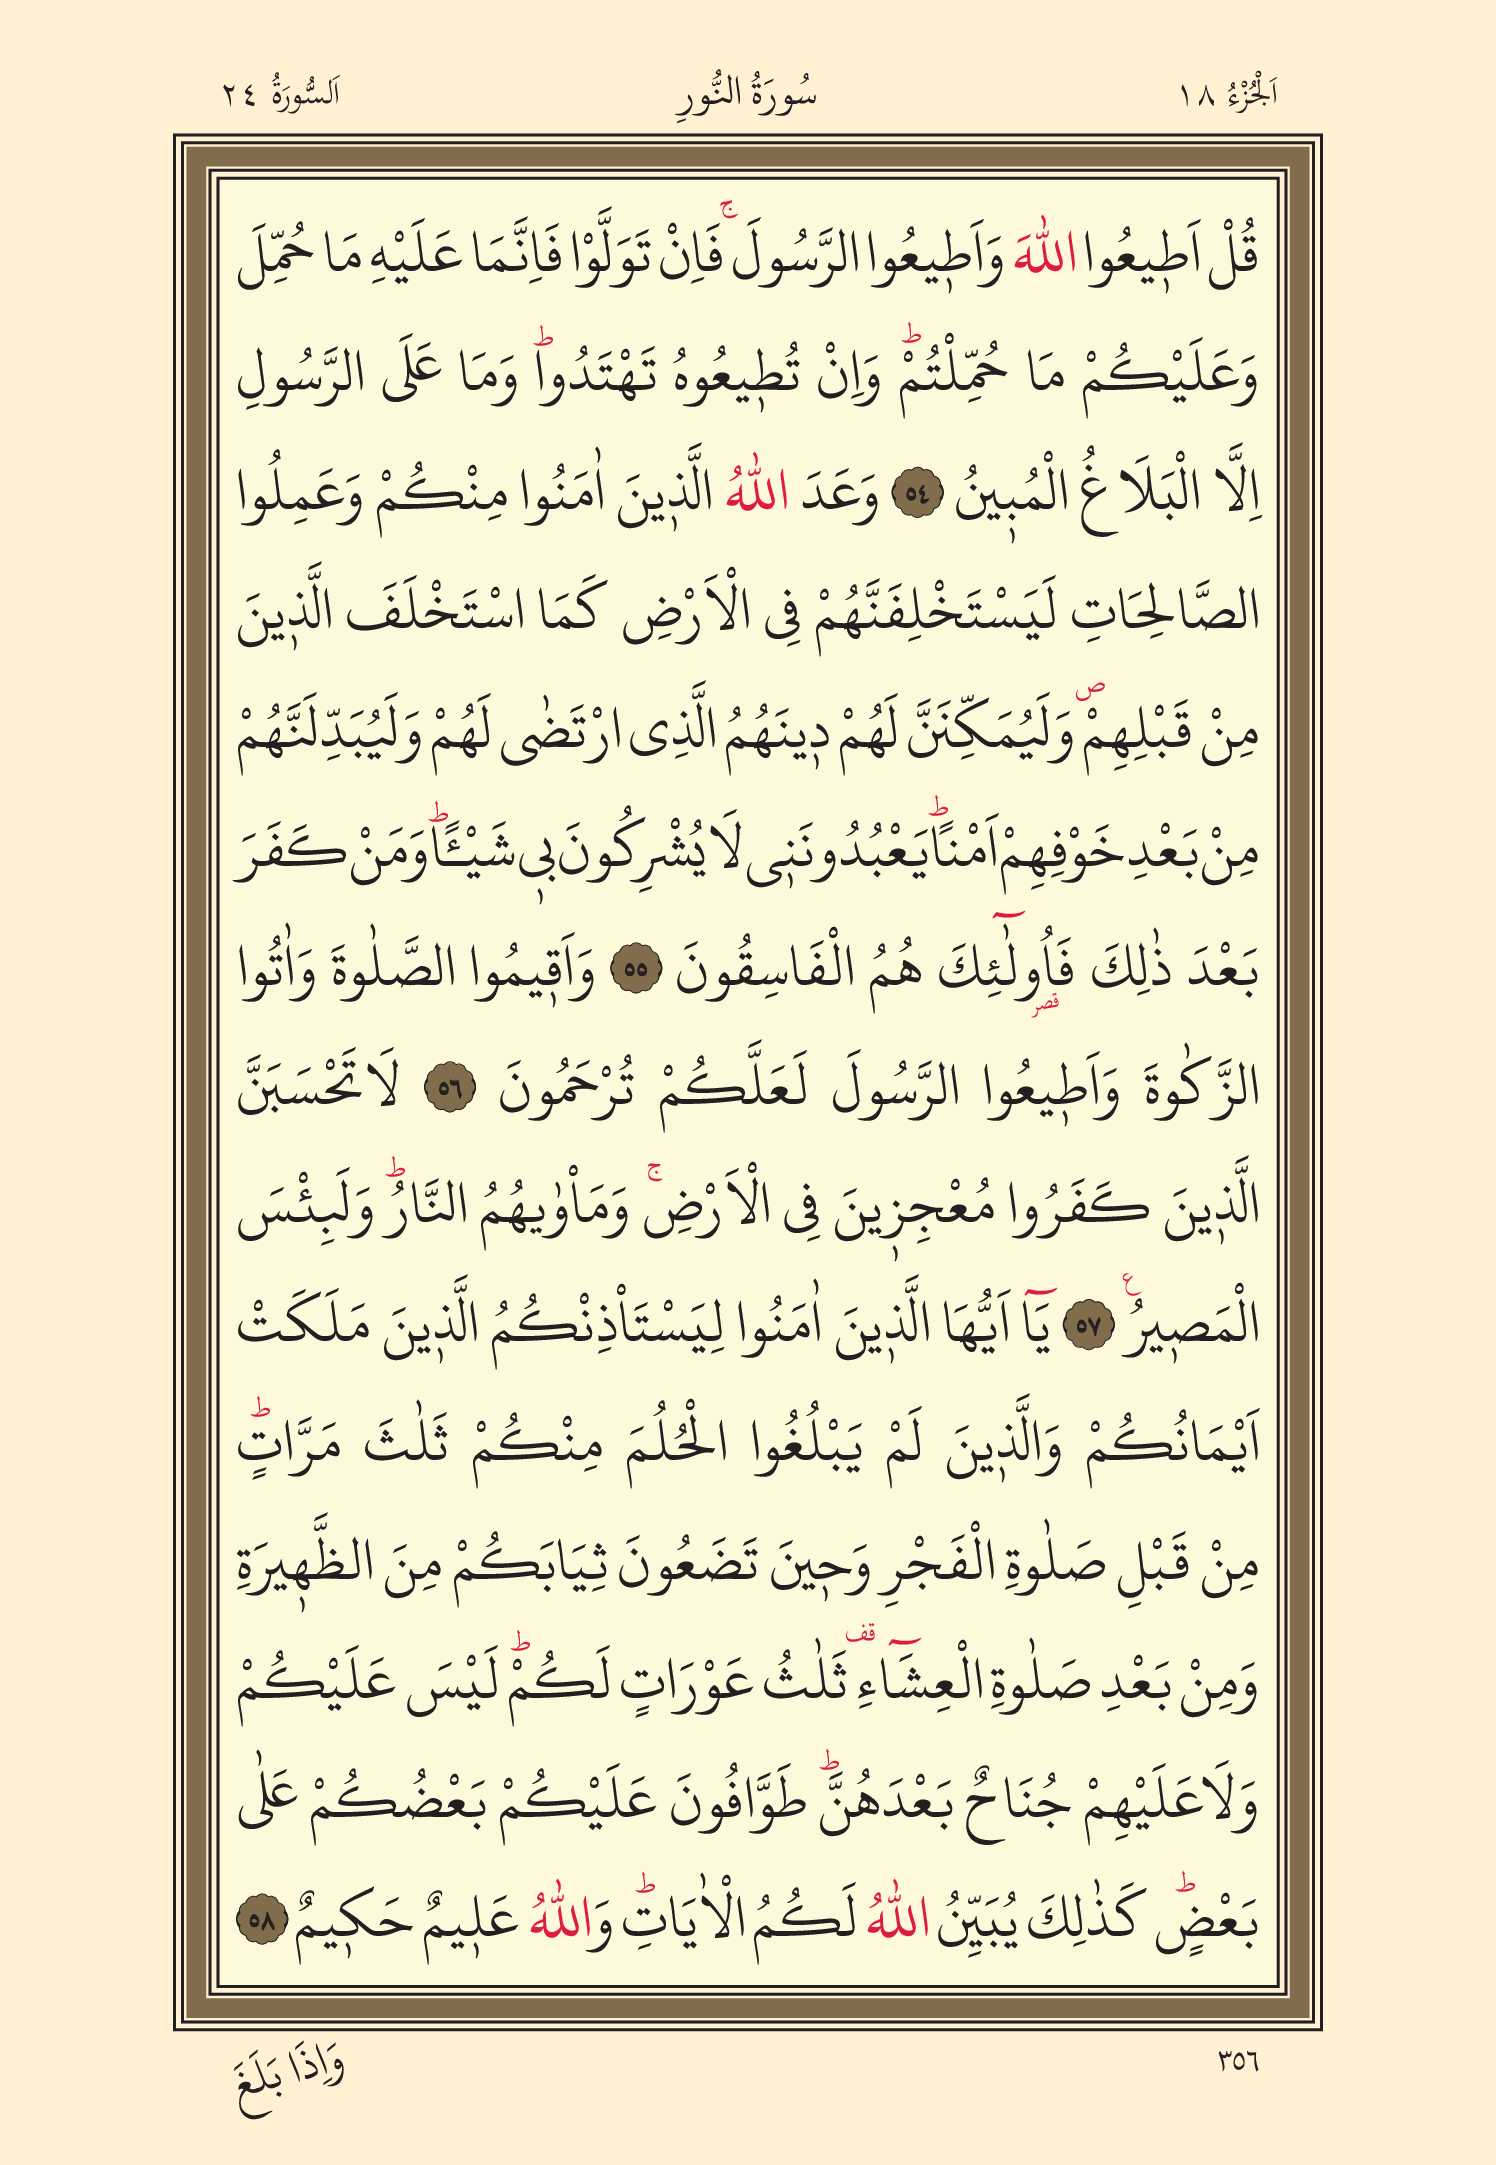 اَلْجُزْءُ ١٨
سُورَةُ النُّورِ
اَلسُّورَةُ ٢٤
قُلْ اَطٖيعُوا اللّٰهَ وَاَطٖيعُوا الرَّسُولَۚ فَاِنْ تَوَلَّوْا فَاِنَّمَا عَلَيْهِ مَا حُمِّلَ
وَعَلَيْكُمْ مَا حُمِّلْتُمْؕ وَاِنْ تُطٖيعُوهُ تَهْتَدُواؕ وَمَا عَلَى الرَّسُولِ
اِلَّا الْبَلَاغُ الْمُبٖينُ ٥٤ وَعَدَ اللّٰهُ الَّذٖينَ اٰمَنُوا مِنْكُمْ وَعَمِلُوا
الصَّالِحَاتِ لَيَسْتَخْلِفَنَّهُمْ فِى الْاَرْضِ كَمَا اسْتَخْلَفَ الَّذٖينَ
مِنْ قَبْلِهِمْࣕ وَلَيُمَكِّنَنَّ لَهُمْ دٖينَهُمُ الَّذِى ارْتَضٰى لَهُمْ وَلَيُبَدِّلَنَّهُمْ
مِنْ بَعْدِ خَوْفِهِمْ اَمْنًاؕ يَعْبُدُونَنٖى لَا يُشْرِكُونَ بٖى شَيْـًٔاؕ وَمَنْ كَفَرَ
بَعْدَ ذٰلِكَ فَاُولٰٓئِكَ قصر هُمُ الْفَاسِقُونَ ٥٥ وَاَقٖيمُوا الصَّلٰوةَ وَاٰتُوا
الزَّكٰوةَ وَاَطٖيعُوا الرَّسُولَ لَعَلَّكُمْ تُرْحَمُونَ ٥٦ لَا تَحْسَبَنَّ
الَّذٖينَ كَفَرُوا مُعْجِزٖينَ فِى الْاَرْضِۚ وَمَاْوٰيهُمُ النَّارُؕ وَلَبِئْسَ
الْمَصٖيرُ ع ٥٧ يَٓا اَيُّهَا الَّذٖينَ اٰمَنُوا لِيَسْتَاْذِنْكُمُ الَّذٖينَ مَلَكَتْ
اَيْمَانُكُمْ وَالَّذٖينَ لَمْ يَبْلُغُوا الْحُلُمَ مِنْكُمْ ثَلٰثَ مَرَّاتٍؕ
مِنْ قَبْلِ صَلٰوةِ الْفَجْرِ وَحٖينَ تَضَعُونَ ثِيَابَكُمْ مِنَ الظَّهٖيرَةِ
وَمِنْ بَعْدِ صَلٰوةِ الْعِشَٓاءِ قف ثَلٰثُ عَوْرَاتٍ لَكُمْؕ لَيْسَ عَلَيْكُمْ
وَلَا عَلَيْهِمْ جُنَاحٌ بَعْدَهُنَّؕ طَوَّافُونَ عَلَيْكُمْ بَعْضُكُمْ عَلٰى
بَعْضٍؕ كَذٰلِكَ يُبَيِّنُ اللّٰهُ لَكُمُ الْاٰيَاتِؕ وَاللّٰهُ عَلٖيمٌ حَكٖيمٌ ٥٨
٣٥٦
وَاِذَا بَلَغَ